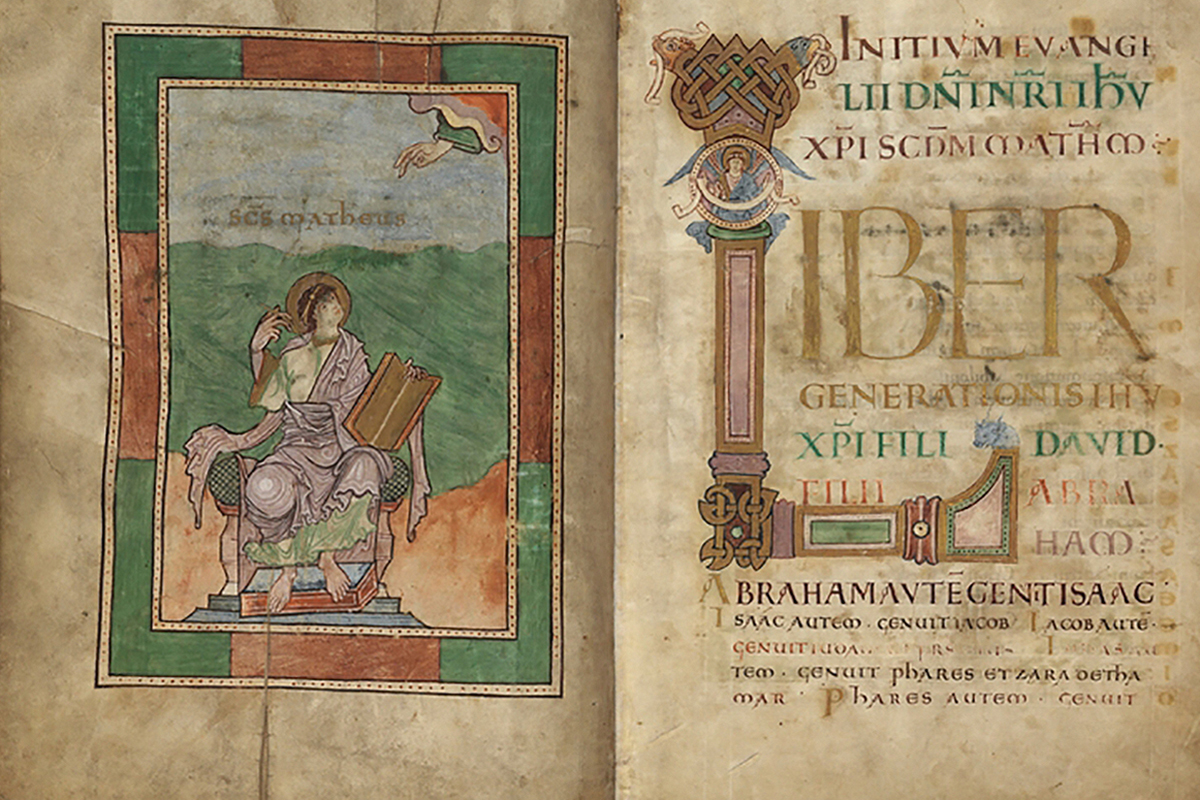 SCS MATHEUS
INITIUM EVANGE
LII DN̄I NR̄I IHV
XP̄I SCDM MATHM:
LIBER
GENERATIONIS IHV
XP̄I FILI DAVID·
FILII ABRA
HAM:
ABRAHAM AVTĒ GENT ISAAC
ISAAC AUTEM · GENUIT IACOB IACOB AUTĒ·
GENUIT IUDA
TEM · GENUIT PHARES ET ZARA DE THA
MAR PHARES AUTEM · GENUIT